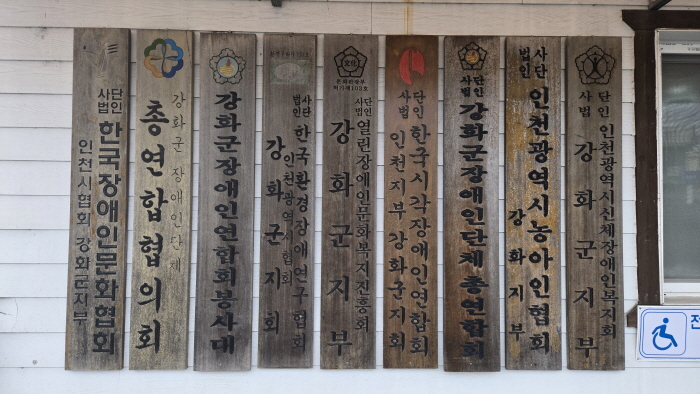 사단
법인
한국장애인문화협회
인천시협회 강화군지부
강화군 장애인단체
총연합협의회
강화군장애인연합회봉사대
사단
법인
한국환경장애연구협회
인천광역시협회
강화군지회
문화관광부
허가제103호
사단
법인
열린장애인문화복지진흥회
강화군지부
사단
법인
한국시각장애인연합회
인천지부강화군지회
사단
법인
강화군장애인단체총연합회
사단
법인
인천광역시농아인협회
강화지부
사단
법인
인천광역시신체장애인복지회
강화군지부